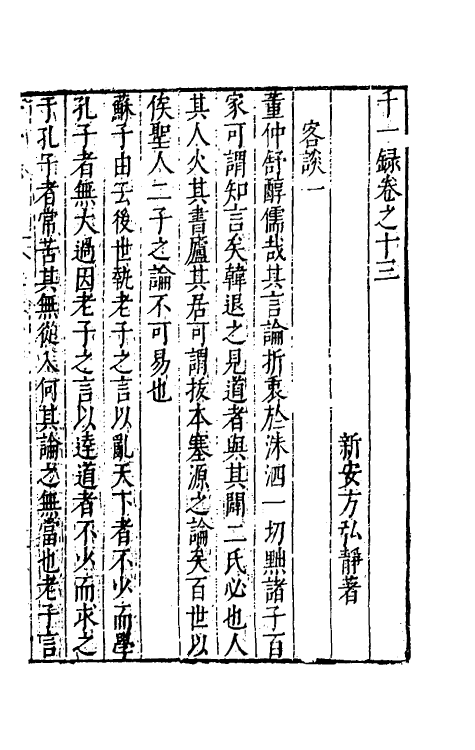 千一録卷之十三
新安方弘靜著
客談一
董仲舒醇儒哉其言論折衷於洙泗一切黜諸子百
家可謂知言矣韓退之見道者與其闢二氏必也人
其人火其書廬其居可謂拔本塞源之論矣百世以
俟聖人二子之論不可易也
蘇子由云後世執老子之言以亂天下者不少而學
孔子者無大過因老子之言以達道者不少而求之
于孔子者常苦其無從入何其論之無當也老子言